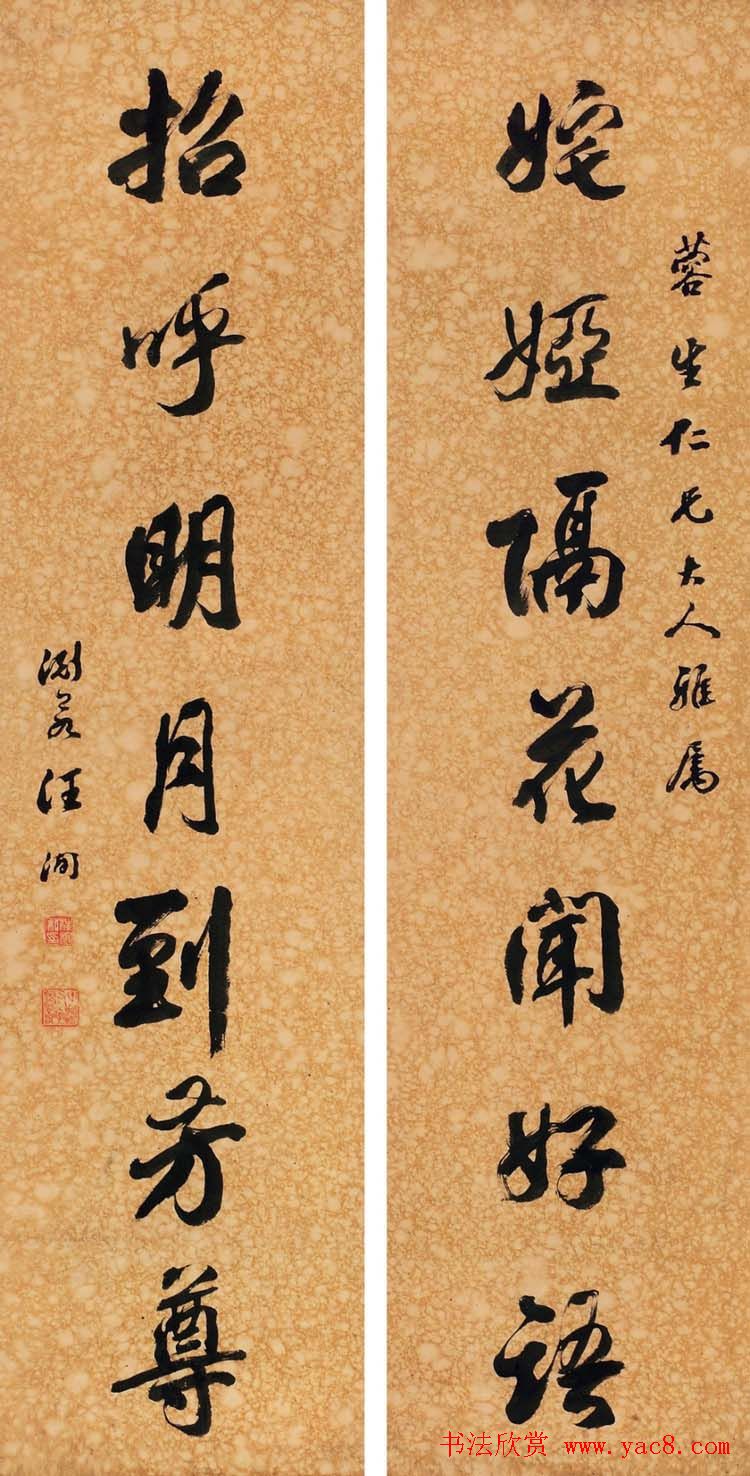 蓉生仁兄大人雅属
姹婭隔花聞好語
招呼明月到芳尊
渊若汪洵
书法欣赏 www.yac8.com